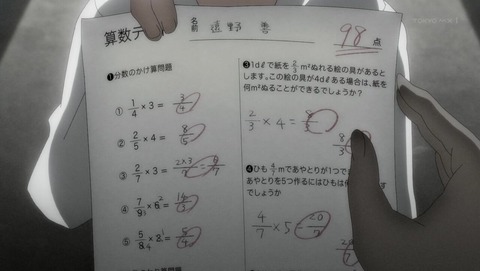 TOKYO MX 1
算数テ
名前 遠野 香
98点
❶分数のかけ算問題
① 1/4 × 3 = 3/4
② 2/5 × 4 = 8/5
③ 2/7 × 3 = 2×3/7 = 6/7
④
⑤
❸ 1dlで紙を 2/3 m²ぬれる絵の具があると
します。この絵の具が4dlある場合は、紙を
何m²ぬることができるでしょうか?
2/3 × 4 = 8/3
8/3
❹ひも 4/7 mであやとりが1つで
あやとりを5つ作るにはひもは
すでしょうか
4/7 × 5 = 20/7
20